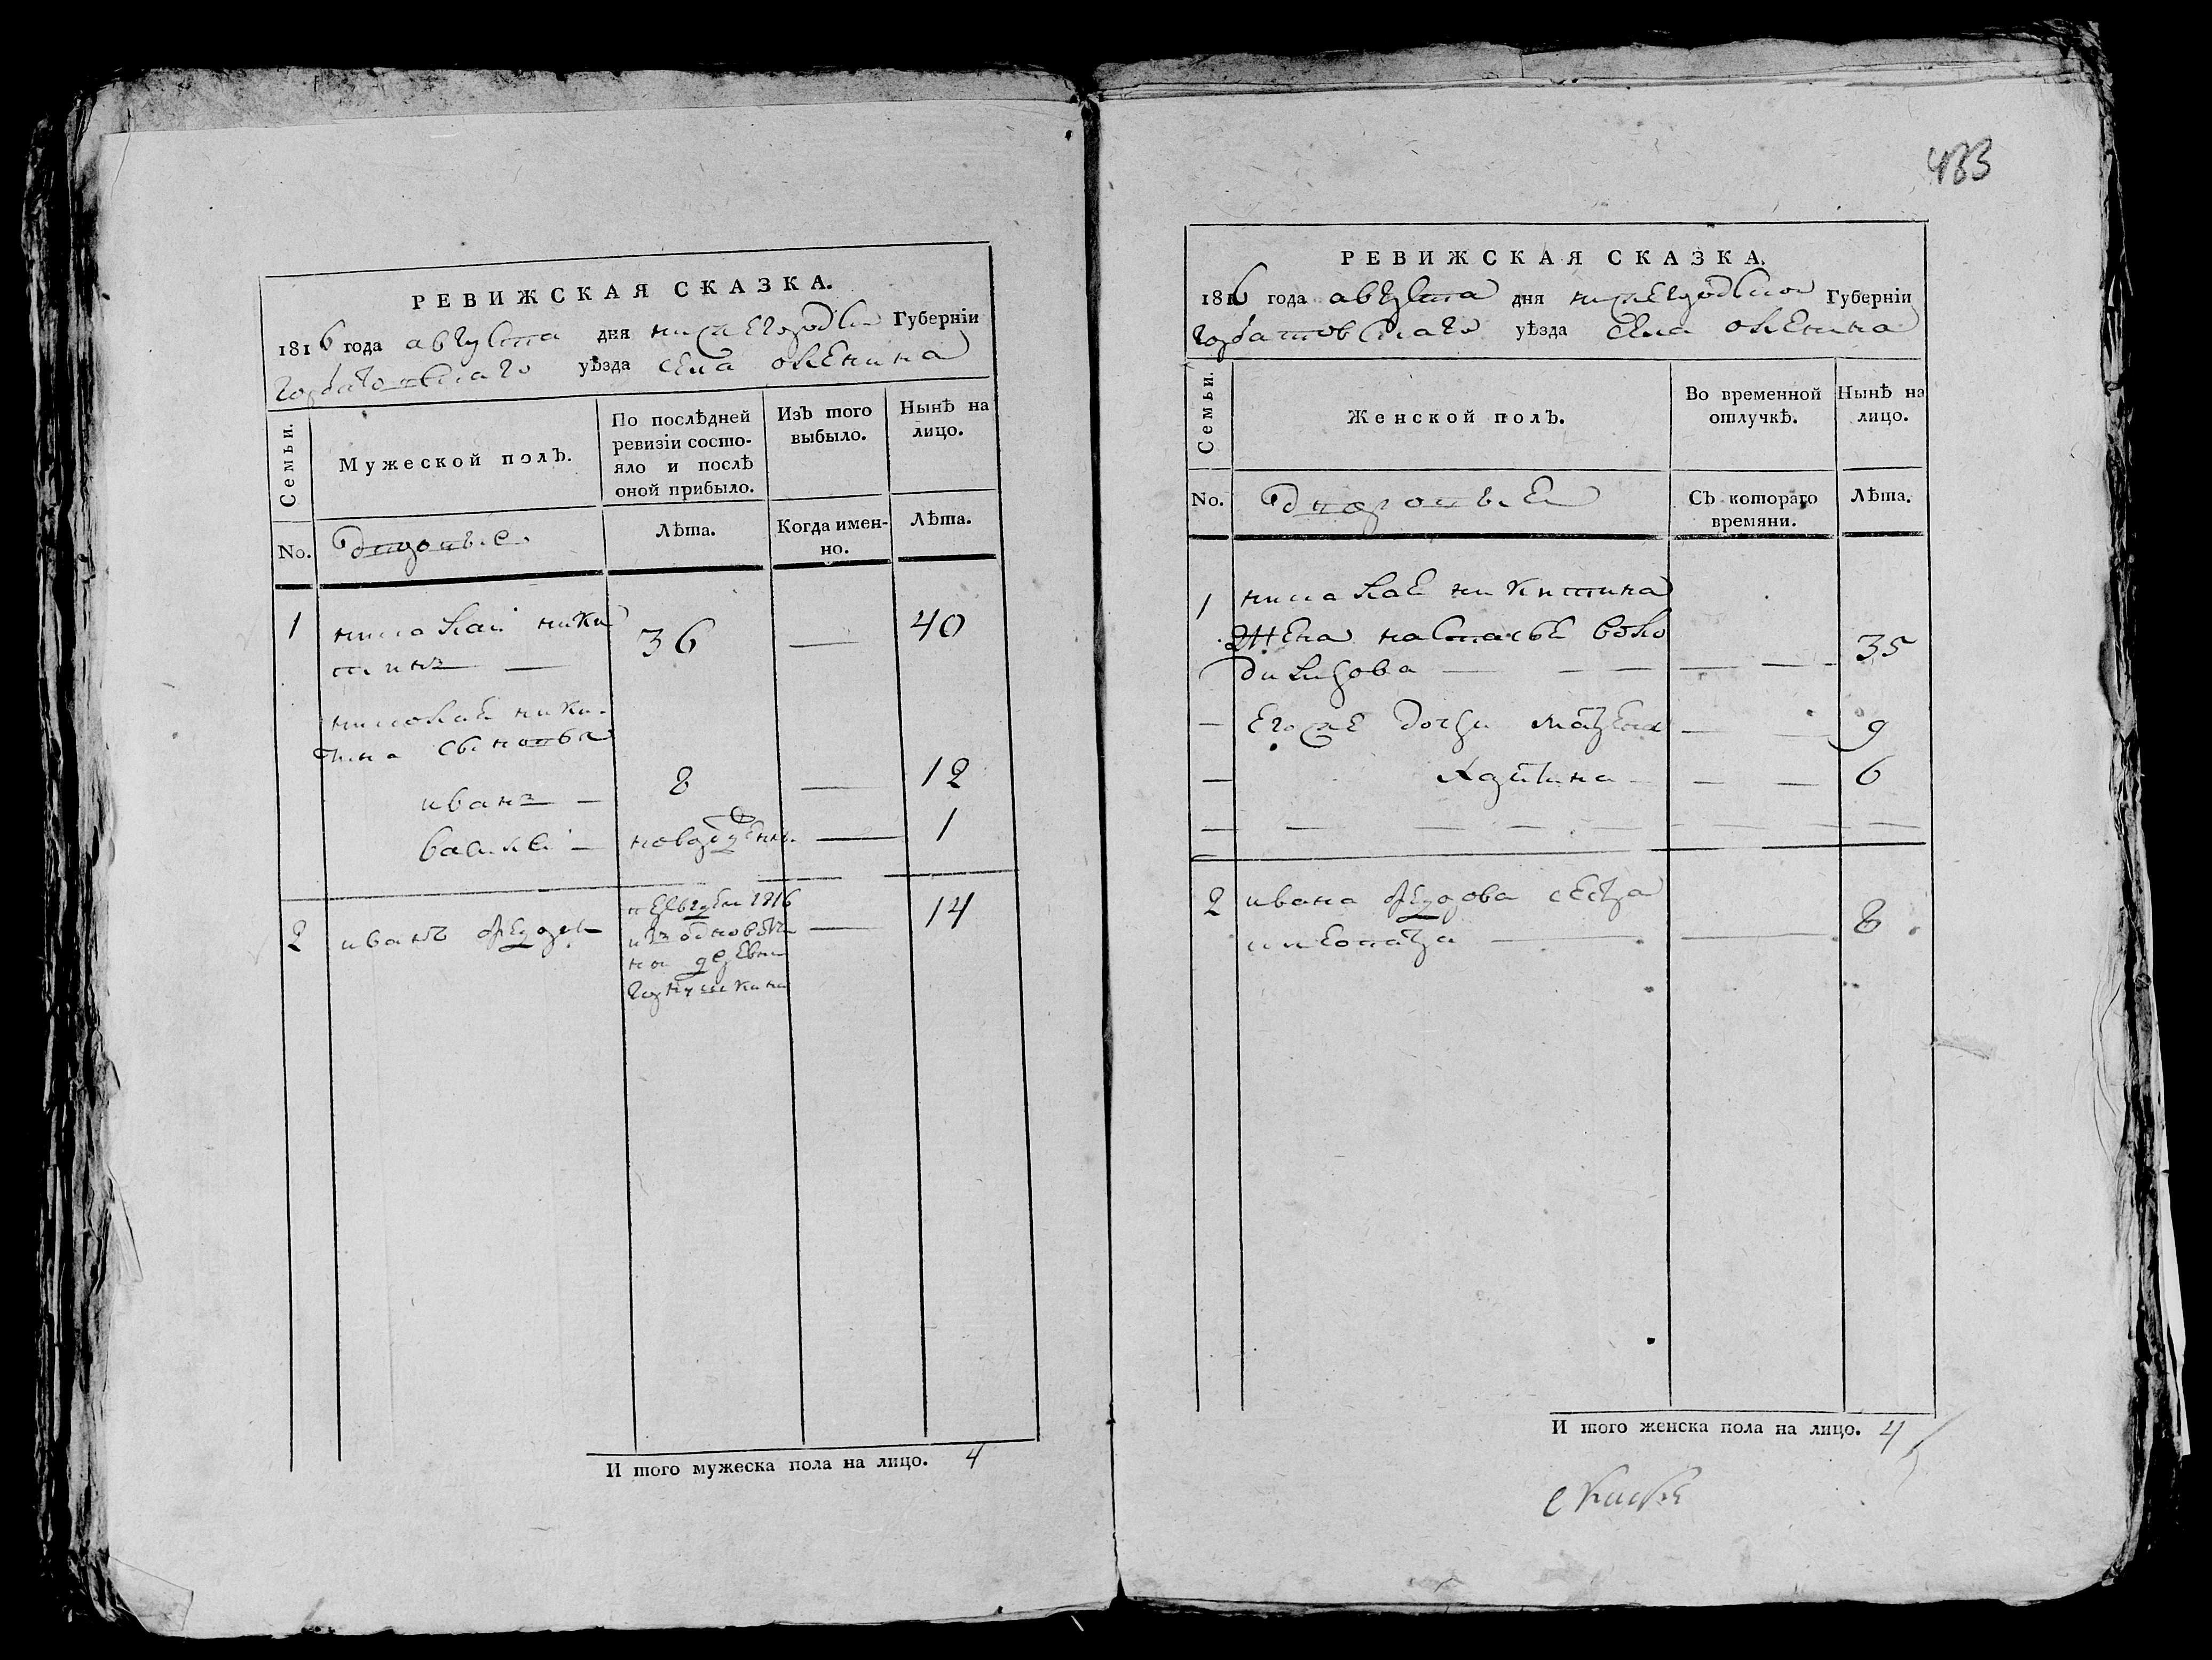 РЕВИЖСКАЯ СКАЗКА.
1816 года августа дня нижегородской Губерніи
горбатовскаго уѣзда села оленина
Семьи.
Мужеской полъ.
По послѣдней ревизіи состо-
яло и послѣ
оной прибыло.
Изъ того
выбыло.
Нынѣ на
лицо.
No.
дворовые
Лѣта.
Когда имен-
но.
Лѣта.
1 николай ники
тинъ 36 40
николая ники
тина сыновья
иванъ 8 12
василей новорожденъ 1
2 иванъ федоровъ 1816 14
из
деревни
И того мужеска пола на лицо. 4
483
РЕВИЖСКАЯ СКАЗКА.
1816 года августа дня нижегородской Губерніи
горбатовскаго уѣзда села оленина
Семьи.
Женской полъ.
Во временной
отлучкѣ.
Нынѣ на
лицо.
No.
дворовые
Съ котораго
времяни.
Лѣта.
1 николая никитина
жена настасья 35
его же дочери матрена 9
6
2 ивана федорова сестра
8
И того женска пола на лицо. 4